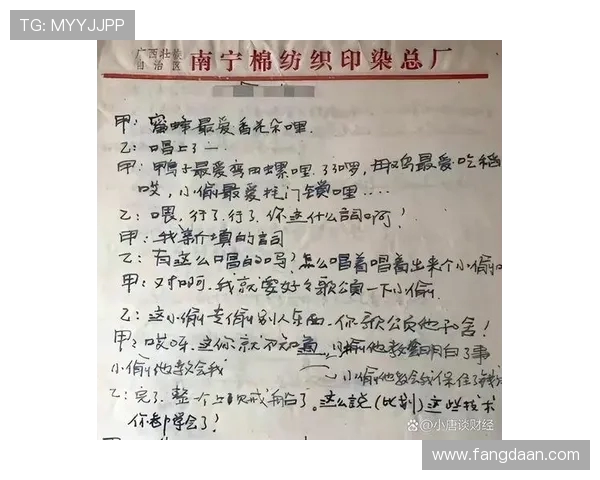 TG: MYYJJPP
广西壮族
自治区 南宁棉纺织印染总厂
甲：蜜蜂最爱香花朵哩.
乙：唱上了一
甲：鸭子最爱弯田螺哩了啰，母鸡最爱吃稻
哎，小偷最爱撬门锁哩····
乙：喂，行了，行了，你这什么词啊！
甲：我新填的词
乙：有这么唱的吗？怎么唱着唱着出来个小偷
甲：对啊，我就要好好歌颂一下小偷.
乙：这小偷专偷别人东西，你歌颂他和舍！
甲：哎呀，这你就不知道，小偷他教会明白了事
小偷他教会我 小偷他教会我保住了钱
乙：完了，整个上贼船了。这么说（比划）这些技术
你都学会了！
头条 @小唐谈财经
www.fangdaan.com